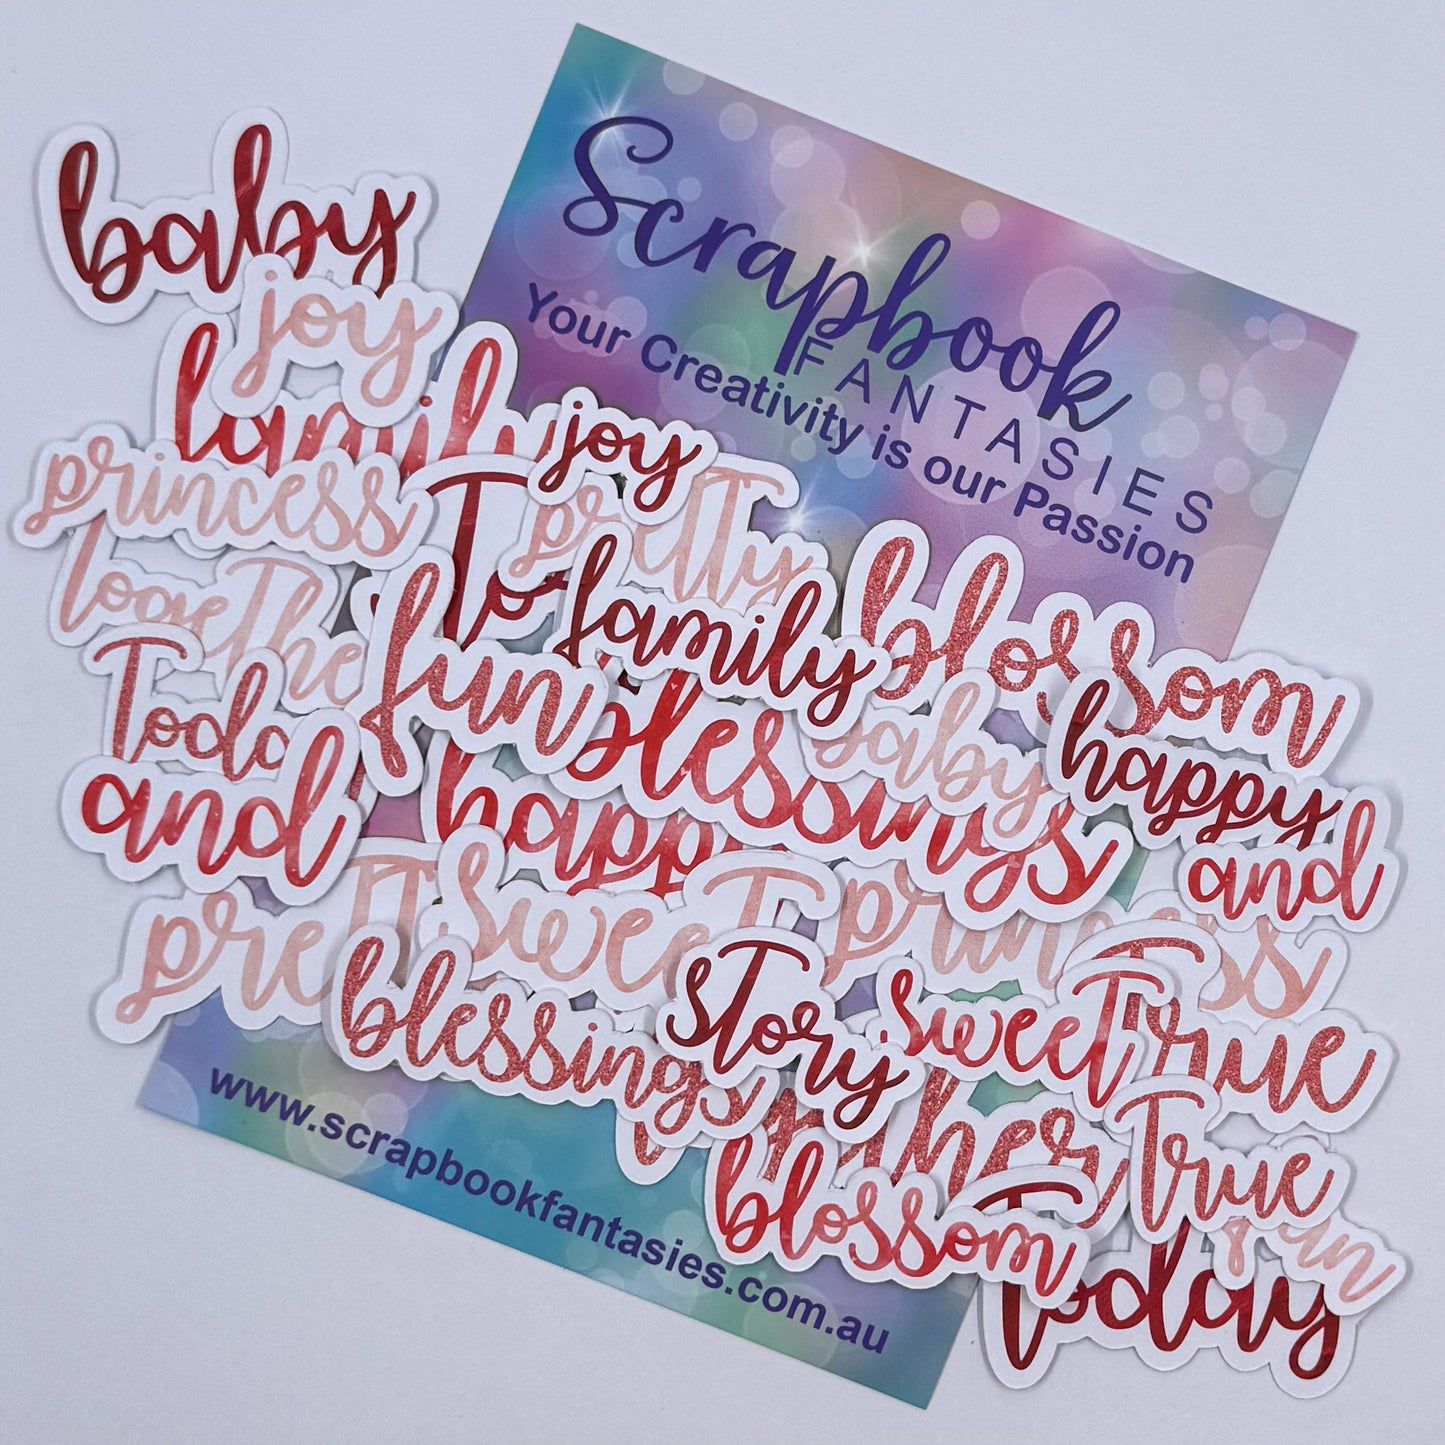 Scrapbook
FANTASIES
Your Creativity is our Passion
baby
joy
family
joy
princess
pretty
To
together
family
blossom
fun
Today
blessings
baby
happy
and
happy
and
sweet
princess
pretty
blessings
story
sweet
True
together
True
blossom
fun
Today
www.scrapbookfantasies.com.au